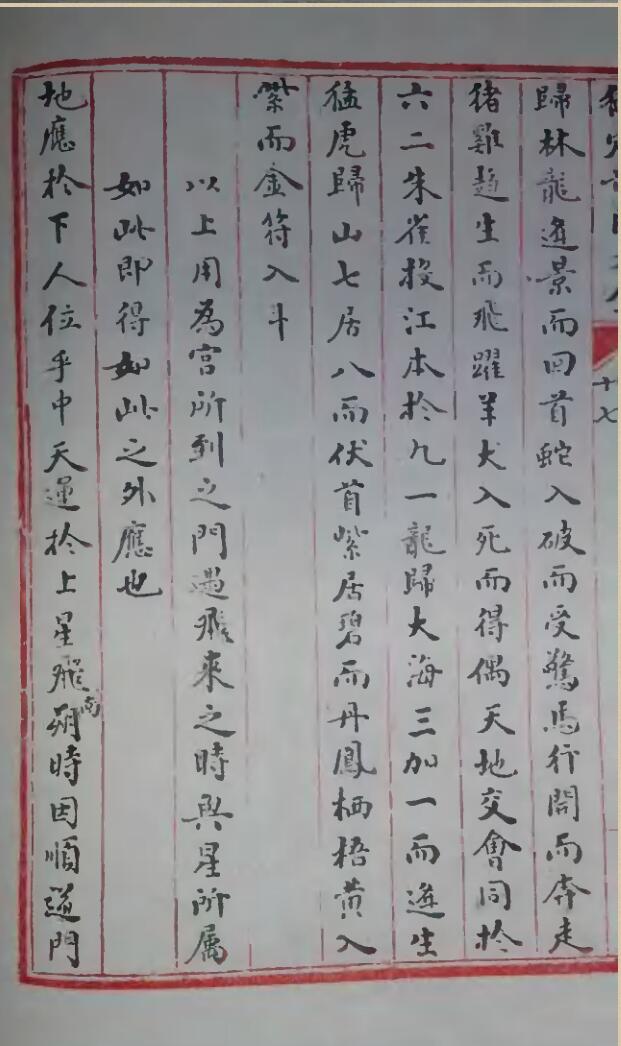 十七
歸林龍逰景而回首蛇入破而受驚馬行開而奔走
猪雞趋生而飛躍羊犬入死而得偶天地交會同於
六二朱雀投江本於九一龍歸大海三加一而逰生
猛虎歸山七居八而伏首紫居碧而丹鳳栖梧黄入
紫而金符入斗
以上用為宮所到之門過飛來之時與星所属
如此即得如此之外應也
地應於下人位乎中天運於上星飛朔時因順逆門
南